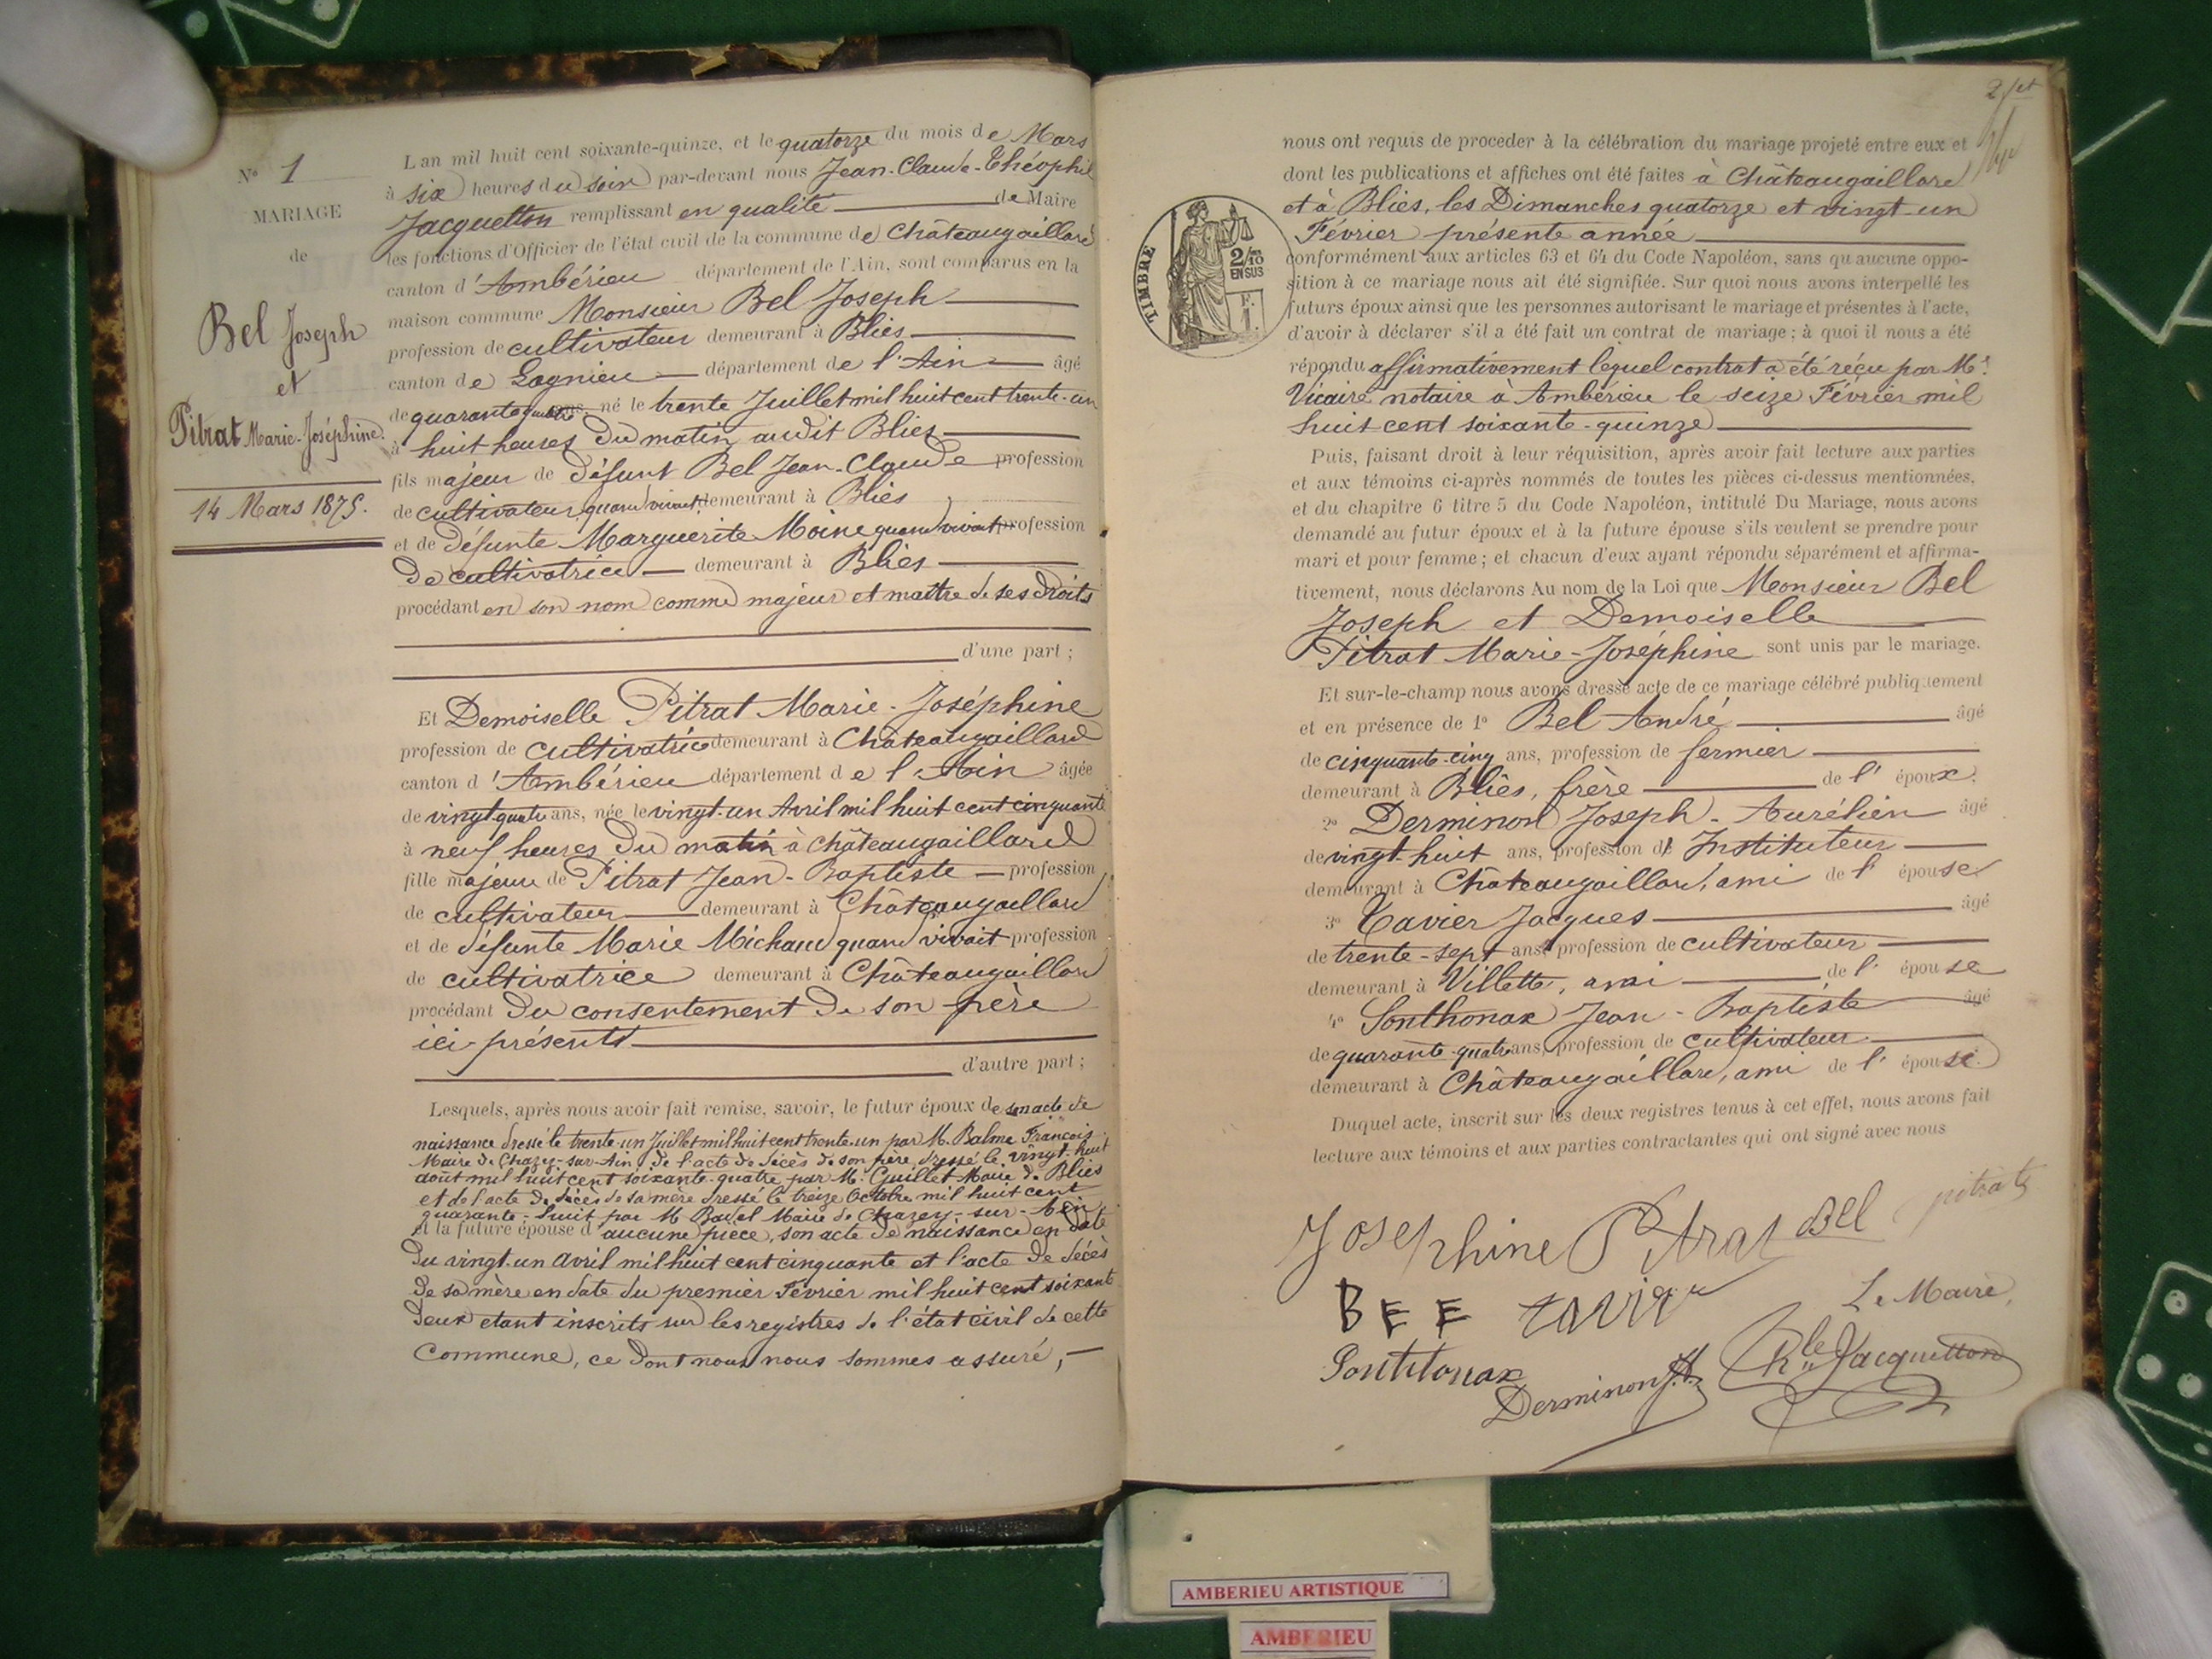 N° 1
MARIAGE
de
Bel Joseph
et
Pitrat Marie-Joséphine.
14 Mars 1875.
L an mil huit cent soixante-quinze, et le quatorze du mois de Mars
à six heures du soir par-devant nous Jean-Claude-Théophile
Jacquetton remplissant en qualité de Maire
les fonctions d'Officier de l'état civil de la commune de Châteaugaillard
canton d'Ambérieu département de l'Ain, sont comparus en la
maison commune Monsieur Bel Joseph
profession de cultivateur demeurant à Blies
canton de Lagnieu département de l'Ain âgé
de quarante quatre ans, né le trente Juillet mil huit cent trente-un
à huit heures du matin audit Blies
fils majeur de défunt Bel Jean-Claude profession
de cultivateur quand vivait demeurant à Blies
et de défunte Marguerite Moine quand vivait profession
de cultivatrice demeurant à Blies
procédant en son nom comme majeur et maître de ses droits
d'une part ;
Et Demoiselle Pitrat Marie-Joséphine
profession de cultivatrice demeurant à Châteaugaillard
canton d'Ambérieu département de l'Ain âgée
de vingt-quatre ans, née le vingt-un Avril mil huit cent cinquante
à neuf heures du matin à Châteaugaillard
fille majeure de Pitrat Jean-Baptiste profession
de cultivateur demeurant à Châteaugaillard
et de défunte Marie Michaud quand vivait profession
de cultivatrice demeurant à Châteaugaillard
procédant du consentement de son père
ici présent
d'autre part ;
Lesquels, après nous avoir fait remise, savoir, le futur époux de son acte de
naissance dressé le trente-un Juillet mil huit cent trente-un par M. Balme François
Maire de Chazey-sur-Ain, de l'acte de décès de son père, dressé le vingt-huit
août mil huit cent soixante-quatre par M. Guillet Maire de Blies
et de l'acte de décès de sa mère dressé le treize Octobre mil huit cent
quarante-huit par M Maire de Chazey-sur-Ain
et la future épouse d'aucune pièce, son acte de naissance en date
du vingt-un avril mil huit cent cinquante et l'acte de décès
de sa mère en date du premier Février mil huit cent soixante
deux étant inscrits sur les registres de l'état civil de cette
Commune, ce dont nous nous sommes assuré,
nous ont requis de procéder à la célébration du mariage projeté entre eux et
dont les publications et affiches ont été faites à Châteaugaillard
et à Blies, les Dimanches quatorze et vingt-un
Février présente année
conformément aux articles 63 et 64 du Code Napoléon, sans qu'aucune oppo-
sition à ce mariage nous ait été signifiée. Sur quoi nous avons interpellé les
futurs époux ainsi que les personnes autorisant le mariage et présentes à l'acte,
d'avoir à déclarer s'il a été fait un contrat de mariage ; à quoi il nous a été
répondu affirmativement lequel contrat a été reçu par Me
Vicaire notaire à Ambérieu le seize Février mil
huit cent soixante-quinze
TIMBRE
2/10
EN SUS
F.
1.
Puis, faisant droit à leur réquisition, après avoir fait lecture aux parties
et aux témoins ci-après nommés de toutes les pièces ci-dessus mentionnées,
et du chapitre 6 titre 5 du Code Napoléon, intitulé Du Mariage, nous avons
demandé au futur époux et à la future épouse s'ils veulent se prendre pour
mari et pour femme ; et chacun d'eux ayant répondu séparément et affirma-
tivement, nous déclarons Au nom de la Loi que Monsieur Bel
Joseph et Demoiselle
Pitrat Marie-Joséphine sont unis par le mariage.
Et sur-le-champ nous avons dressé acte de ce mariage célébré publiquement
et en présence de 1° Bel André âgé
de cinquante-cinq ans, profession de fermier
demeurant à Blies, frère de l'époux.
2° Derminon Joseph-Aurélien âgé
de vingt-huit ans, profession d' Instituteur
demeurant à Châteaugaillard, ami de l'épouse
3° Tavier Jacques âgé
de trente-sept ans, profession de cultivateur
demeurant à Villette, ami de l'épouse
4° Sonthonax Jean-Baptiste âgé
de quarante-quatre ans, profession de cultivateur
demeurant à Châteaugaillard, ami de l'épouse
Duquel acte, inscrit sur les deux registres tenus à cet effet, nous avons fait
lecture aux témoins et aux parties contractantes qui ont signé avec nous
Josephine Pitrat Bel pitrat
BEE tavier Le Maire,
Sonthonax Derminon J.A. Jacquetton
AMBERIEU ARTISTIQUE
AMBERIEU